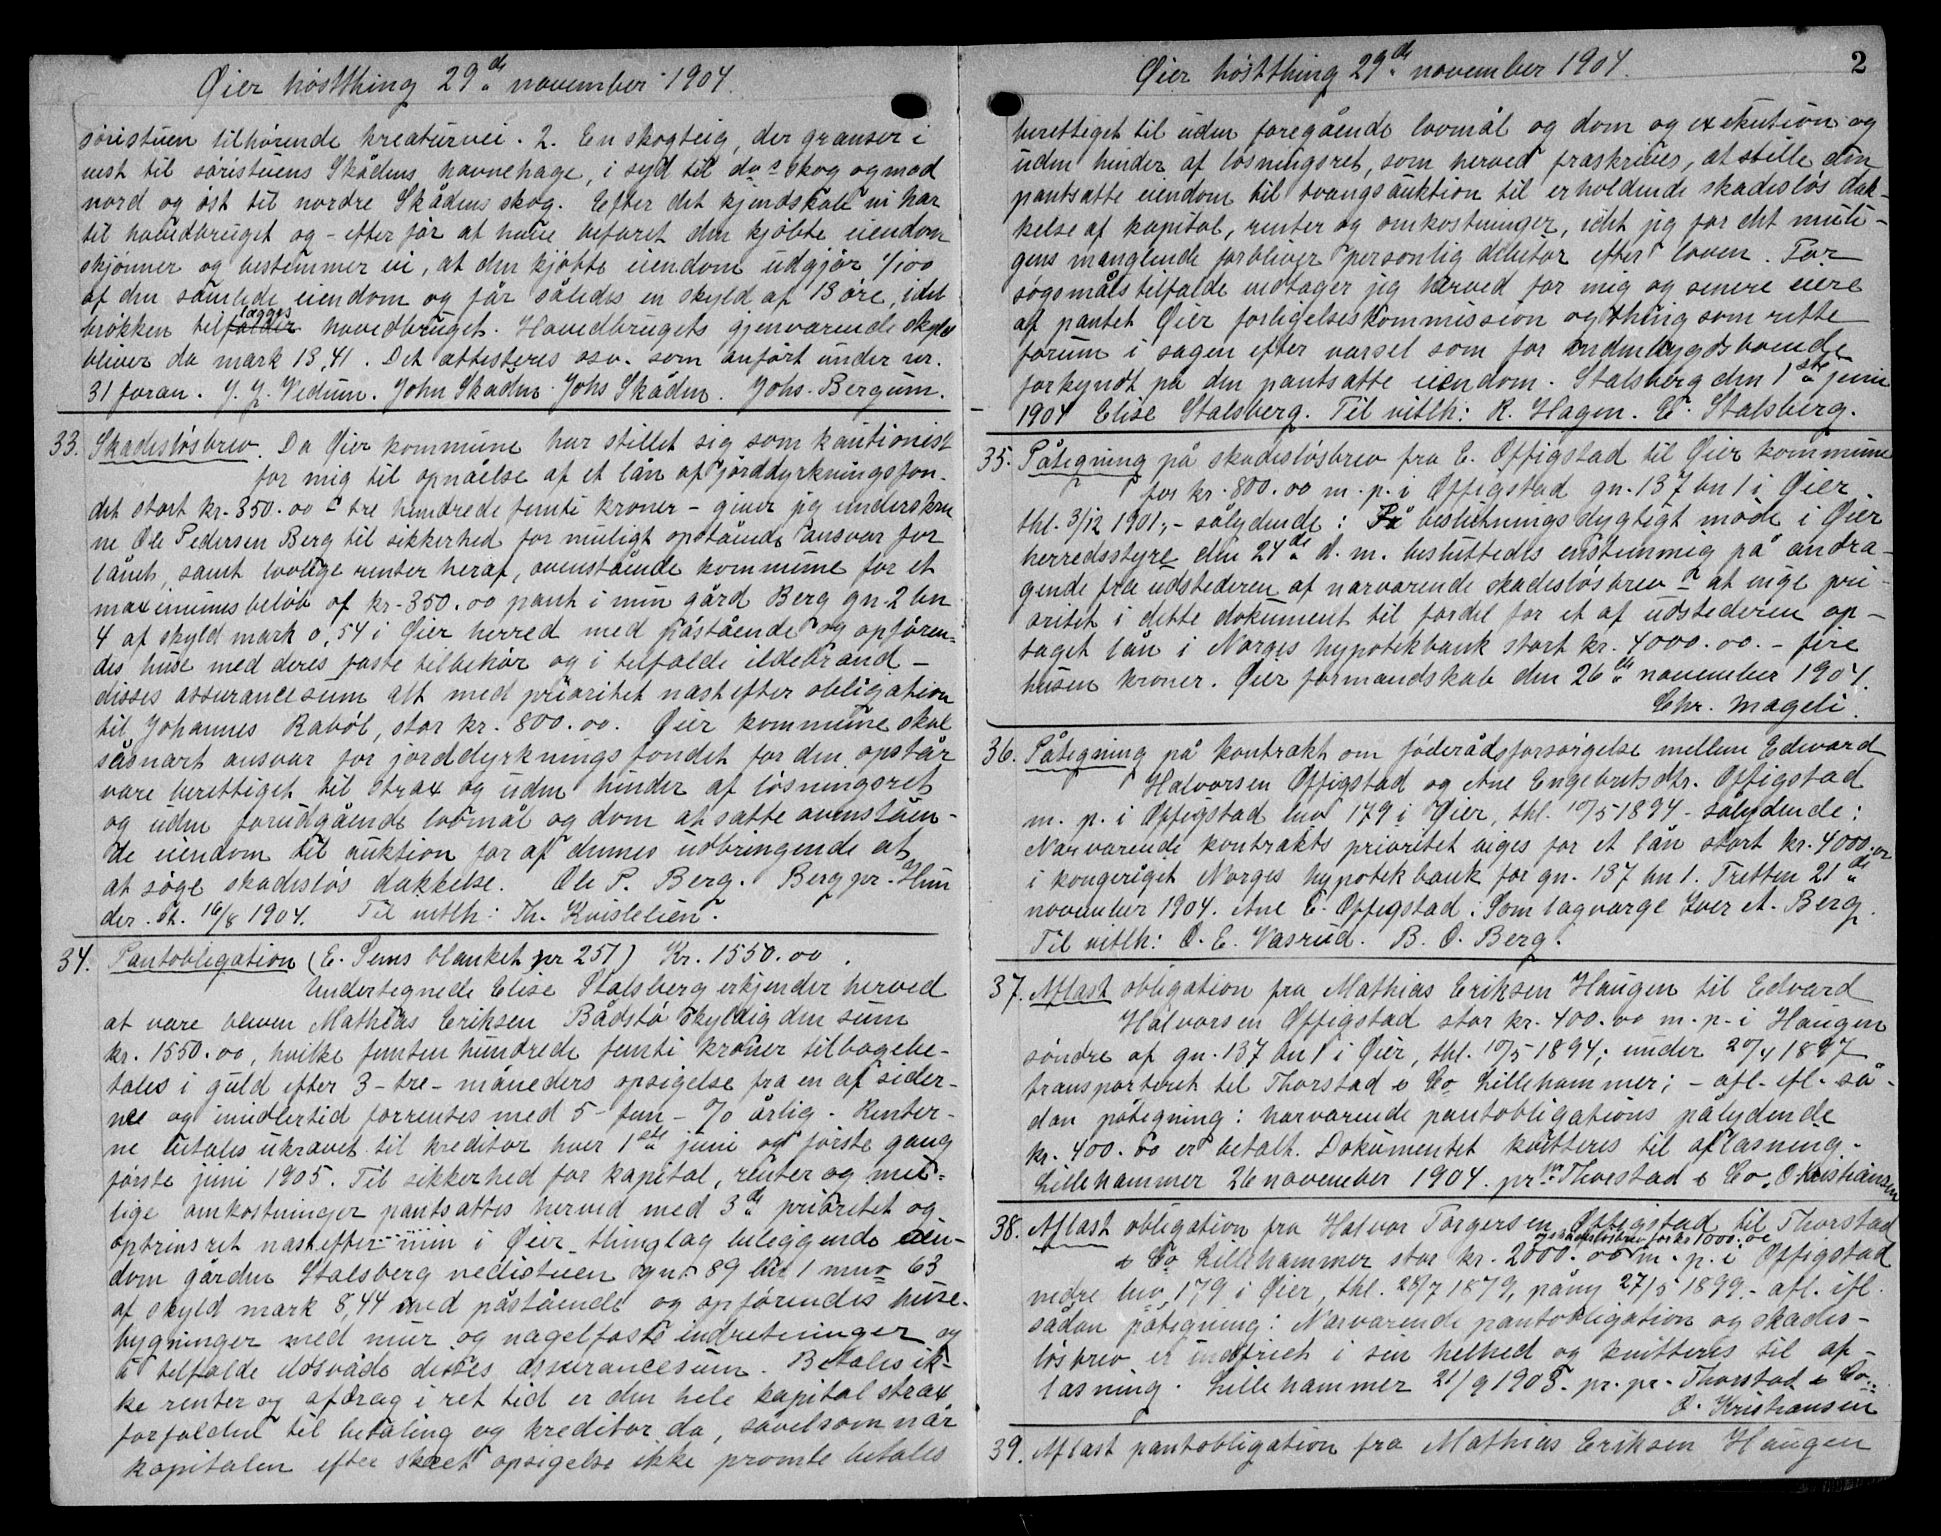 Øier høstthing 29de november 1904.
søristuen tilhørende kreaturvei. 2. En skogteig, der grænser i
vest til søristuens Skådens havnehage, i syd til do skog og mod
nord og øst til nordre Skådens skog. Efter det kjendskab vi har
til hovedbruget og - efter før at have befaret den kjøbte eiendom
skjønner og bestemmer vi, at den kjøbte eiendom udgjør 1/100
af den samlede eiendom og får således en skyld af 13 øre, idet
brøkken tillægges hovedbruget. Hovedbrugets gjenværende skyld
bliver da mark 13,41. Det attesteres osv. som anført under nr.
31 foran. J. J. Vedum. John Skåden. Johs Skåden. Johs. Bergum.
33. Skadesløsbrev. Da Øier kommune har stillet sig som kautionist
for mig til opnåelse af et lån af jorddyrkningsfon-
det stort kr. 350.00 - tre hundrede femti kroner - giver jeg underskrev
ne Ole Pedersen Berg til sikkerhed for muligt opstående ansvar for
lånet, samt lovlige renter heraf, ovenstående kommune for et
maximumsbeløb af kr. 350.00 pant i min gård Berg gn. 2 bn
4 af skyld mark 0,54 i Øier herred med påstående og opføren-
des huse med deres faste tilbehør og i tilfælde ildebrand -
disses assurancesum alt med prioritet næst efter obligation
til Johannes Rabøl, stor kr. 800.00. Øier kommune skal
såsnart ansvar for jorddyrkningsfondet for den opstår
være berettiget til strax og uden hinder af løsningsret
og uden forudgående lovmål og dom at sætte ovenståen-
de eiendom til auktion for af dennes udbringende at
at søge skadesløs dækkelse. Ole P. Berg. Berg pr. Hun
der. st. 16/8 1904. Til vitlh: Th. Kvislelien.
34. Pantobligation (E. Sems blanket nr 251) Kr. 1550.00.
Undertegnede Elise Stalsberg erkjender herved
at være bleven Mathias Eriksen Bådstø skyldig den sum
kr. 1550.00, hvilke femten hundrede femti kroner tilbagebe-
tales i guld efter 3 - tre - måneders opsigelse fra en af sider-
ne og imidlertid forrentes med 5 - fem - % årlig. Renter-
ne betales ukrævet til kreditor hver 1ste juni og første gang
første juni 1905. Til sikkerhed for kapital, renter og mu-
lige omkostninger pantsættes herved med 3de prioritet og
optrinsret næst efter min i Øier thinglag beliggende eien-
dom gården Stalsberg nedistuen gnr. 89 bn 1 mno 63
af skyld mark 8,44 med påstående og opførendes huse-
bygninger med mur og nagelfaste indretninger og
i tilfælde ildsvåde disses assurancesum. Betales ik-
ke renter og afdrag i ret tid er den hele kapital strax
forfalden til betaling og kreditor da, såvelsom når
kapitalen efter skeet opsigelse ikke promte betales
Øier høstthing 29de november 1904. 2
berettiget til uden foregående lovmål og dom og exekution og
uden hinder af løsningsret, som herved fraskrives, at stelle den
pantsatte eiendom til tvangsauktion til erholdende skadesløs dæk-
kelse af kapital, renter og omkostninger, idet jeg for det muli-
gens manglende forbliver personlig debitor efter loven. For
søgsmåls tilfælde vedtager jeg herved for mig og senere eiere
af pantet Øier forligelseskommission og thing som rette
forum i sagen efter varsel som for indenbygdsboende
forkyndt på den pantsatte eiendom. Stalsberg den 1ste juni
1904 Elise Stalsberg. Til vitlh: R. Hagen. E. Stalsberg.
35. Påtegning på skadesløsbrev fra E. Offigstad til Øier kommune
for kr. 800.00 m. p. i Offigstad gn. 137 bn 1 i Øier.
thl. 3/12 1901, - sålydende: På beslutningsdygtigt møde i Øier
herredsstyre den 24de d. m. besluttedes enstemmig på andra-
gende fra udstederen af nærværende skadesløsbrev at vige pri-
oritet i dette dokument til fordel for et af udstederen op-
taget lån i Norges hypotekbank stort kr. 4000.00. - fire
tusen kroner. Øier formandskab den 26de november 1904.
Chr. Mageli.
36. Påtegning på kontrakt om føderådsforsørgelse mellem Edvard
Halvorsen Offigstad og Ane Engebretsdtr. Offigstad
m. p. i Offigstad lno 179 i Øier, thl. 10/5 1894 - sålydende:
Nærværende kontrakts prioritet viges for et lån stort kr. 4000.00
i kongeriget Norges hypotekbank for gn. 137 bn 1. Tretten 21de
november 1904. Ane E. Offigstad. Som lagværge Iver A. Berg.
Til vitlh: O. E. Vasrud. B. O. Berg.
37. Aflæst obligation fra Mathias Eriksen Haugen til Edvard
Halvorsen Offigstad stor kr. 400.00 m. p. i Haugen
søndre af gn. 137 bn 1 i Øier, thl. 10/5 1894; under 20/4 1897
transporteret til Thorstad & Co Lillehammer; - afl. efl. så-
dan påtegning: nærværende pantobligations pålydende
kr. 400.00 er betalt. Dokumentet kvitteres til aflæsning. -
Lillehammer 26 november 1904. pr. Thorstad & Co. O Kristiansen
38. Aflæst obligation fra Halvor Torgersen Offigstad til Thorstad
og skadesløsbrev for kr 1000.00
& Co Lillehammer stor kr. 2000.00 m. p. i Offigstad
nedre lno 179 i Øier, thl. 28/7 1879, påny 27/5 1899. - afl. efl.
sådan påtegning: Nærværende pantobligation og skades-
løsbrev er indfriet i sin helhed og kvitteres til af-
læsning. Lillehammer 21/9 1905. pr. pr. Thorstad & Co.
O. Kristiansen
39. Aflæst pantobligation fra Mathias Eriksen Haugen